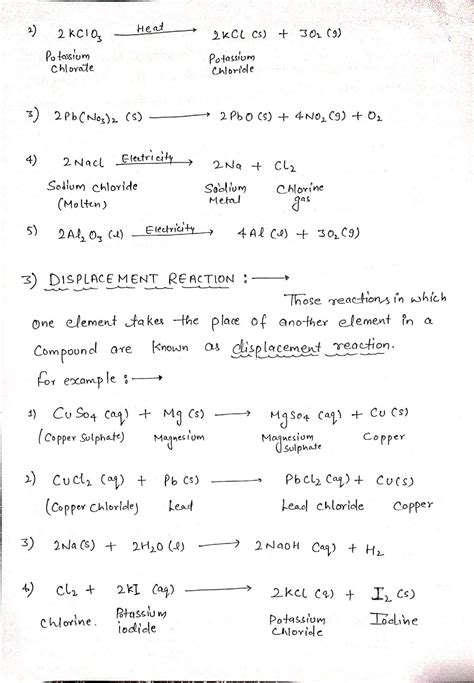 2) 2KClO₃ —Heat→ 2KCl (s) + 3O₂ (g)
Potassium Chlorate Potassium Chloride
3) 2Pb(NO₃)₂ (s) ⟶ 2PbO (s) + 4NO₂ (g) + O₂
4) 2Nacl —Electricity→ 2Na + Cl₂
Sodium Chloride (Molten) Sodium Metal Chlorine gas
5) 2Al₂O₃ (l) —Electricity→ 4Al (l) + 3O₂ (g)
3) DISPLACEMENT REACTION : ⟶
Those reactions in which
one element takes the place of another element in a
Compound are known as displacement reaction.
for example : ⟶
1) CuSO₄ (aq) + Mg (s) ⟶ MgSO₄ (aq) + Cu (s)
(Copper Sulphate) Magnesium Magnesium sulphate Copper
2) CuCl₂ (aq) + Pb (s) ⟶ PbCl₂ (aq) + Cu (s)
(Copper Chloride) Lead Lead chloride Copper
3) 2Na (s) + 2H₂O (l) ⟶ 2NaOH (aq) + H₂
4) Cl₂ + 2KI (aq) ⟶ 2KCl (q) + I₂ (s)
Chlorine. Potassium iodide Potassium Chloride Iodine